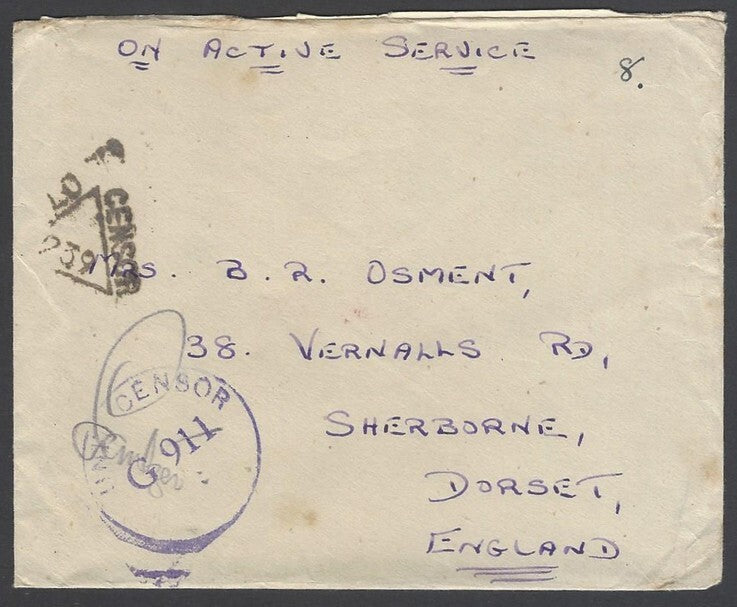 ON ACTIVE SERVICE
8.
CENSOR
MRS. B. R. OSMENT,
38. VERNALLS RD,
CENSOR
911
SHERBORNE,
DORSET,
ENGLAND